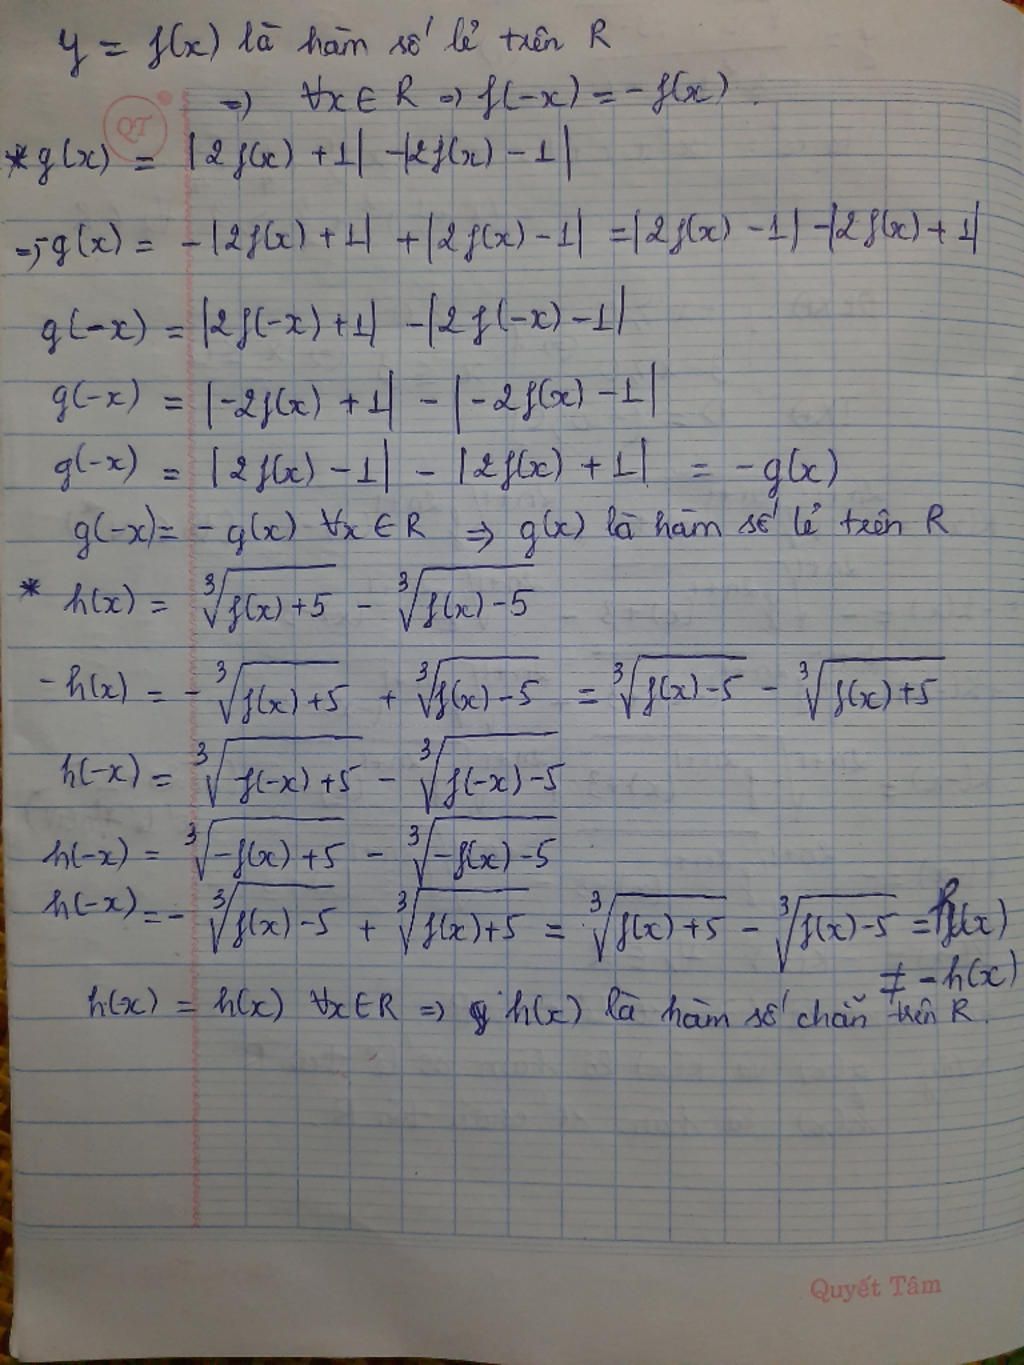 y = f(x) là hàm số lẻ trên R
=> ∀x ∈ R => f(-x) = -f(x).
QT
* g(x) = |2f(x) + 1| - |2f(x) - 1|
=> -g(x) = -|2f(x) + 1| + |2f(x) - 1| = |2f(x) - 1| - |2f(x) + 1|
g(-x) = |2f(-x) + 1| - |2f(-x) - 1|
g(-x) = |-2f(x) + 1| - |-2f(x) - 1|
g(-x) = |2f(x) - 1| - |2f(x) + 1| = -g(x)
g(-x) = -g(x) ∀x ∈ R => g(x) là hàm số lẻ trên R
* h(x) = ∛(f(x) + 5) - ∛(f(x) - 5)
-h(x) = -∛(f(x) + 5) + ∛(f(x) - 5) = ∛(f(x) - 5) - ∛(f(x) + 5)
h(-x) = ∛(f(-x) + 5) - ∛(f(-x) - 5)
h(-x) = ∛(-f(x) + 5) - ∛(-f(x) - 5)
h(-x) = -∛(f(x) - 5) + ∛(f(x) + 5) = ∛(f(x) + 5) - ∛(f(x) - 5) = h(x)
≠ -h(x)
h(-x) = h(x) ∀x ∈ R => h(x) là hàm số chẵn trên R.
Quyết Tâm